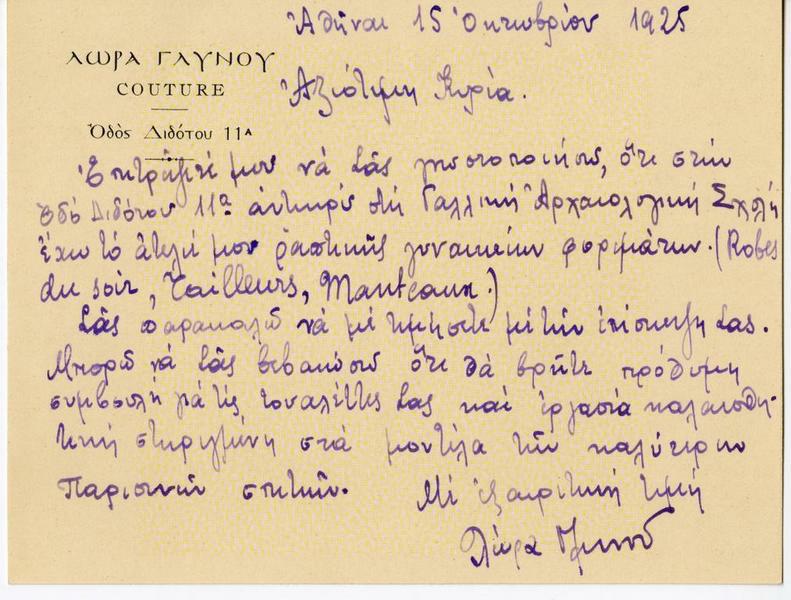 Ἀθῆναι 15 Ὀκτωβρίου 1925
ΛΩΡΑ ΓΛΥΝΟΥ
COUTURE
Ὁδὸς Διδότου 11Α
Ἀξιότιμη Κυρία.
Ἐπιτρέψτέ μου νὰ Σᾶς γνωστοποιήσω, ὅτι στὴν
ὁδὸ Διδότου 11α ἀντικρὺ στὴ Γαλλικὴ Ἀρχαιολογικὴ Σχολὴ
ἔχω τὸ ἀτελιέ μου ῥαπτικῆς γυναικείων φορεμάτων. (Robes
du soir, Tailleurs, Manteaux.)
Σᾶς παρακαλῶ νὰ μὲ τιμήσετε μὲ τὴν ἐπίσκεψή Σας.
Μπορῶ νὰ Σᾶς βεβαιώσω ὅτι θὰ βρῆτε πρόθυμη
συμβουλὴ γιὰ τὶς τουαλέττες Σας καὶ ἐργασία καλαισθη-
τικὴ στηριγμένη στὰ μοντέλα τῶν καλύτερων
Παρισινῶν σπιτιῶν. Μὲ ἐξαιρετικὴ τιμὴ
Λώρα Γλυνοῦ